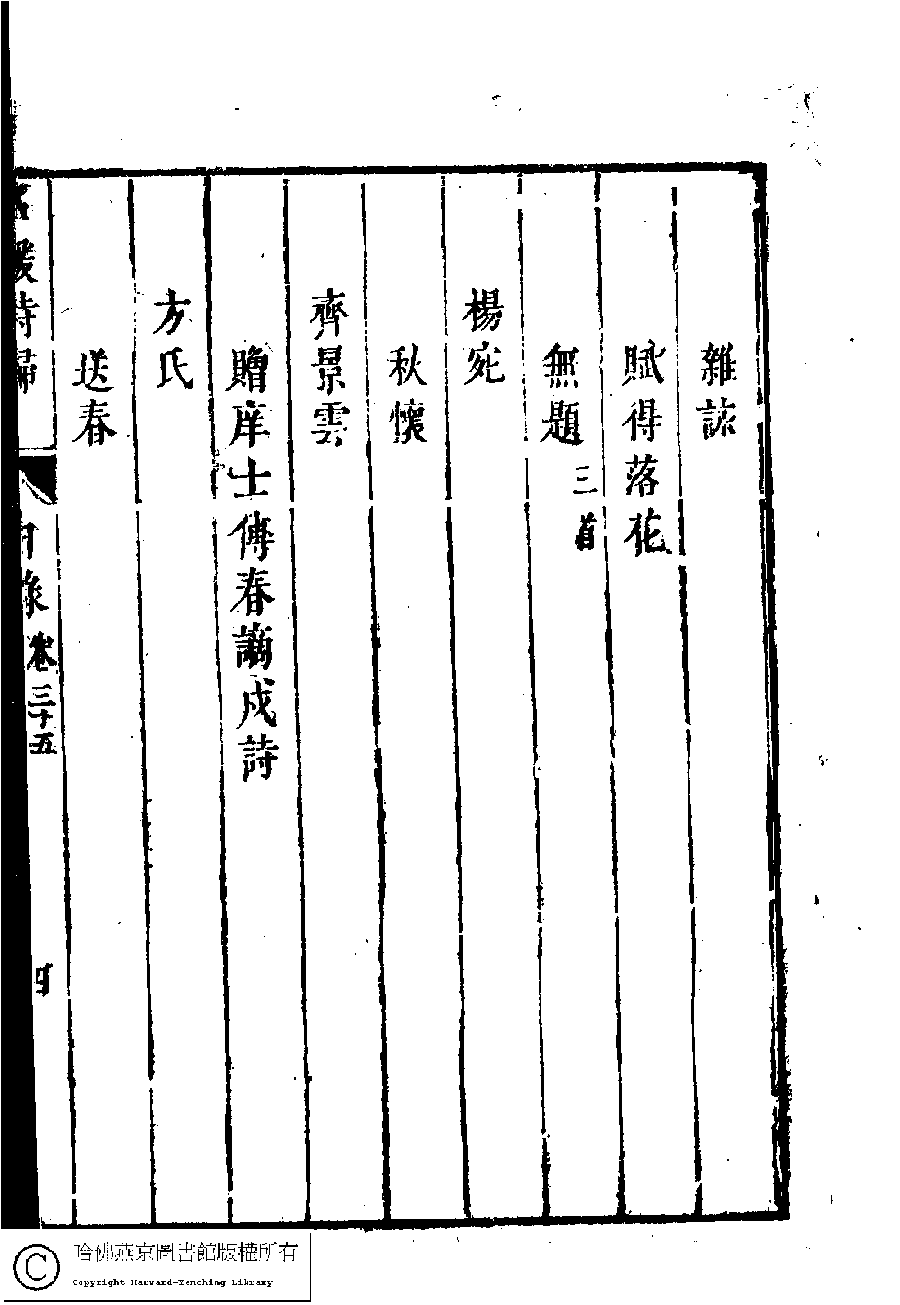 雜詠
賦得落花
無題三首
楊宛
秋懷
齊景雲
贈庠士傅春謫戍詩
方氏
送春
名媛詩歸 目錄 卷三十五 四
哈佛燕京圖書館版權所有
Copyright Harvard-Yenching Library